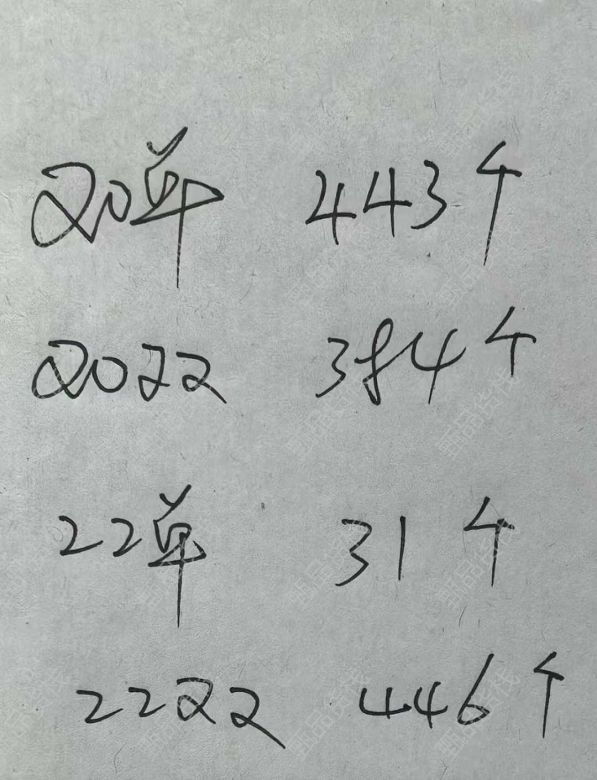 20单 443个
2022 384个
22单 31个
2222 446个